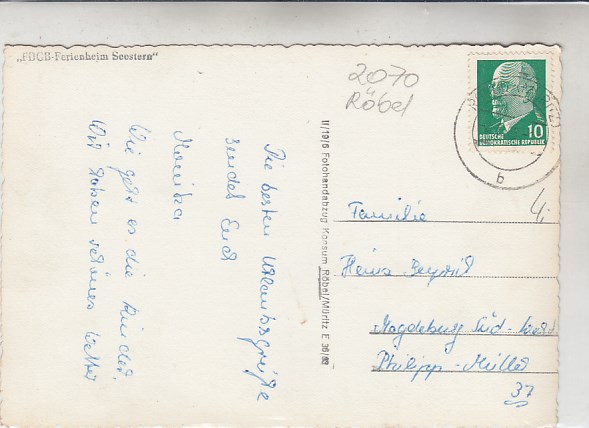 „FDGB-Ferienheim Seestern“
2070
Röbel
DEUTSCHE
DEMOKRATISCHE REPUBLIK
10
b
4,-
Die besten Urlaubsgrüße
sendet Euch
Monika
Wie geht es die Kinder.
Wir haben schönes Wetter
II/19/6 Fotohandabzug Konsum Röbel/Müritz E 36/62
Familie
Heinz
Magdeburg Süd-West
Philipp-Müller
37